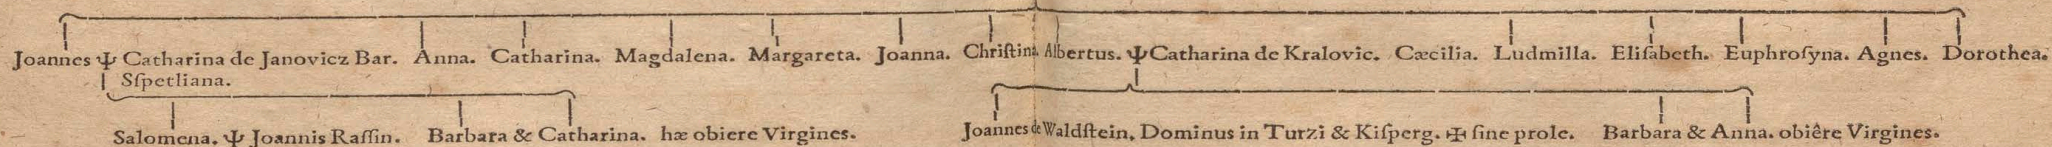 Joannes Ψ Catharina de Janovicz Bar. Anna. Catharina. Magdalena. Margareta. Joanna. Chriſtina. Albertus. Ψ Catharina de Kralovic. Cæcilia. Ludmilla. Eliſabeth. Euphroſyna. Agnes. Dorothea.
Sſpetliana.
Salomena. Ψ Joannis Raſſin. Barbara & Catharina. hæ obiere Virgines. Joannes de Waldſtein. Dominus in Turzi & Kiſperg. ✠ ſine prole. Barbara & Anna. obiêre Virgines.